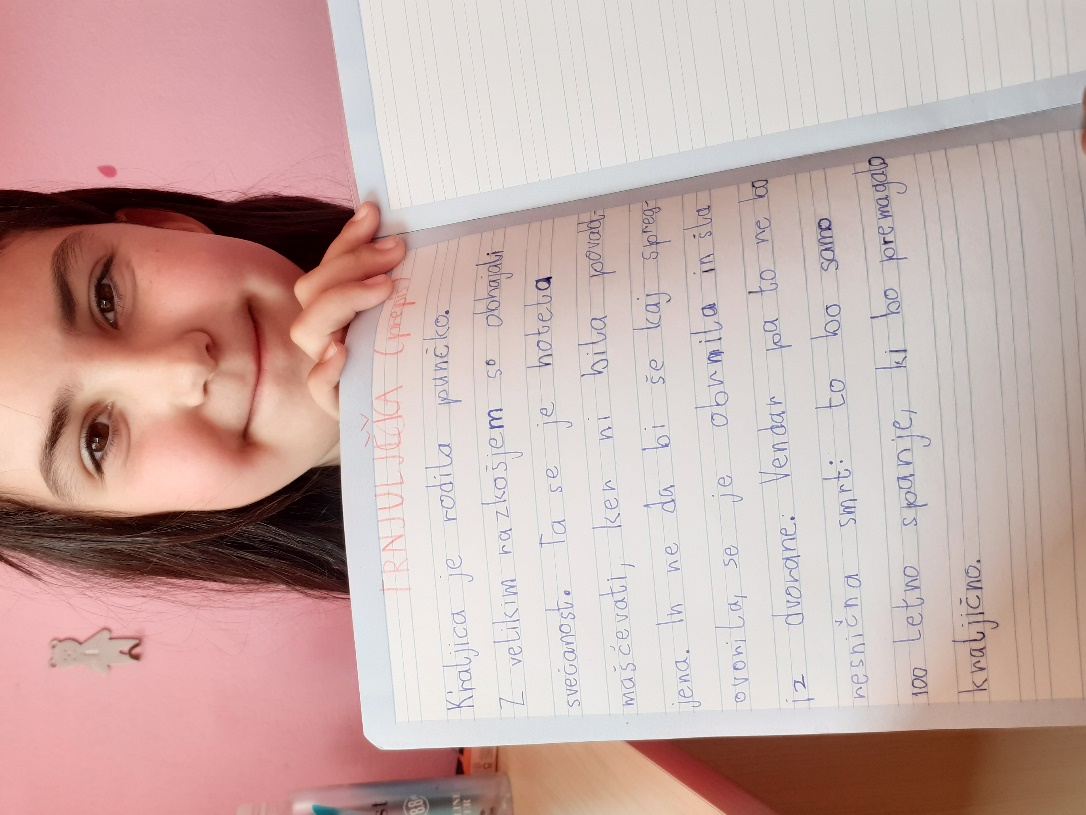 TRNJULJČKA (prepis
Kraljica je rodila punčko.
Z velikim razkošjem so obhajali
svečanost. Ta se je hotela
maščevati, ker ni bila povab-
jena. In ne da bi še kaj spreg-
ovorila, se je obrnila in šla
iz dvorane. Vendar pa to ne bo
resnična smrt: to bo samo
100 letno spanje, ki bo premagalo
kraljično.